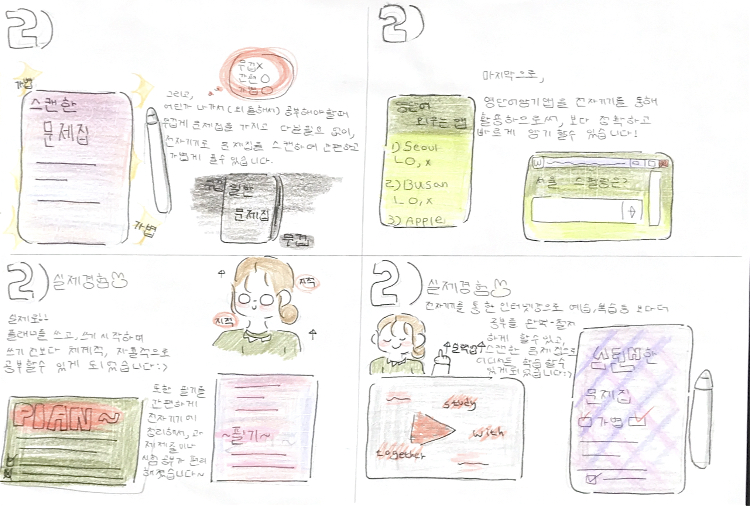 2)
무겁X
간편O
가볍O
가볍
스캔한
문제집
가볍
그리고,
어딘가 나가서(외출해서) 공부해야할때
무겁게 문제집을 가지고 다닐필요 없이,
전자기기로 문제집을 스캔하여 간편하고
가볍게 풀수있습니다.
문제집
무겁
2)
마지막으로,
영단어암기앱을 전자기기를 통해
활용하므로써, 보다 정확하고
빠르게 암기할수 있습니다!
영단어
외우는 앱
1) Seoul
O, X
2) Busan
O, X
3) Apple
서울 스펠링은?
2) 실제경험
지적
지적
실제로는
플래너를 쓰고, 쓰기시작하며
쓰기 전보다 체계적, 자율적으로
공부할수 있게 되었습니다:)
PlAN~
또한 필기를
간편하게
전자기기에
정리하면서, 과
제제출이나
시험공부가 편리
해졌습니다~
~필기~
2) 실제경험
전자기기를 통한 인터넷강의로 예습,복습등 보다더
공부를 완벽-철저
하게 할수있고,
스캔한 문제집으로
학습할수
있게되었습니다:)
study
with
together
문제집
가볍